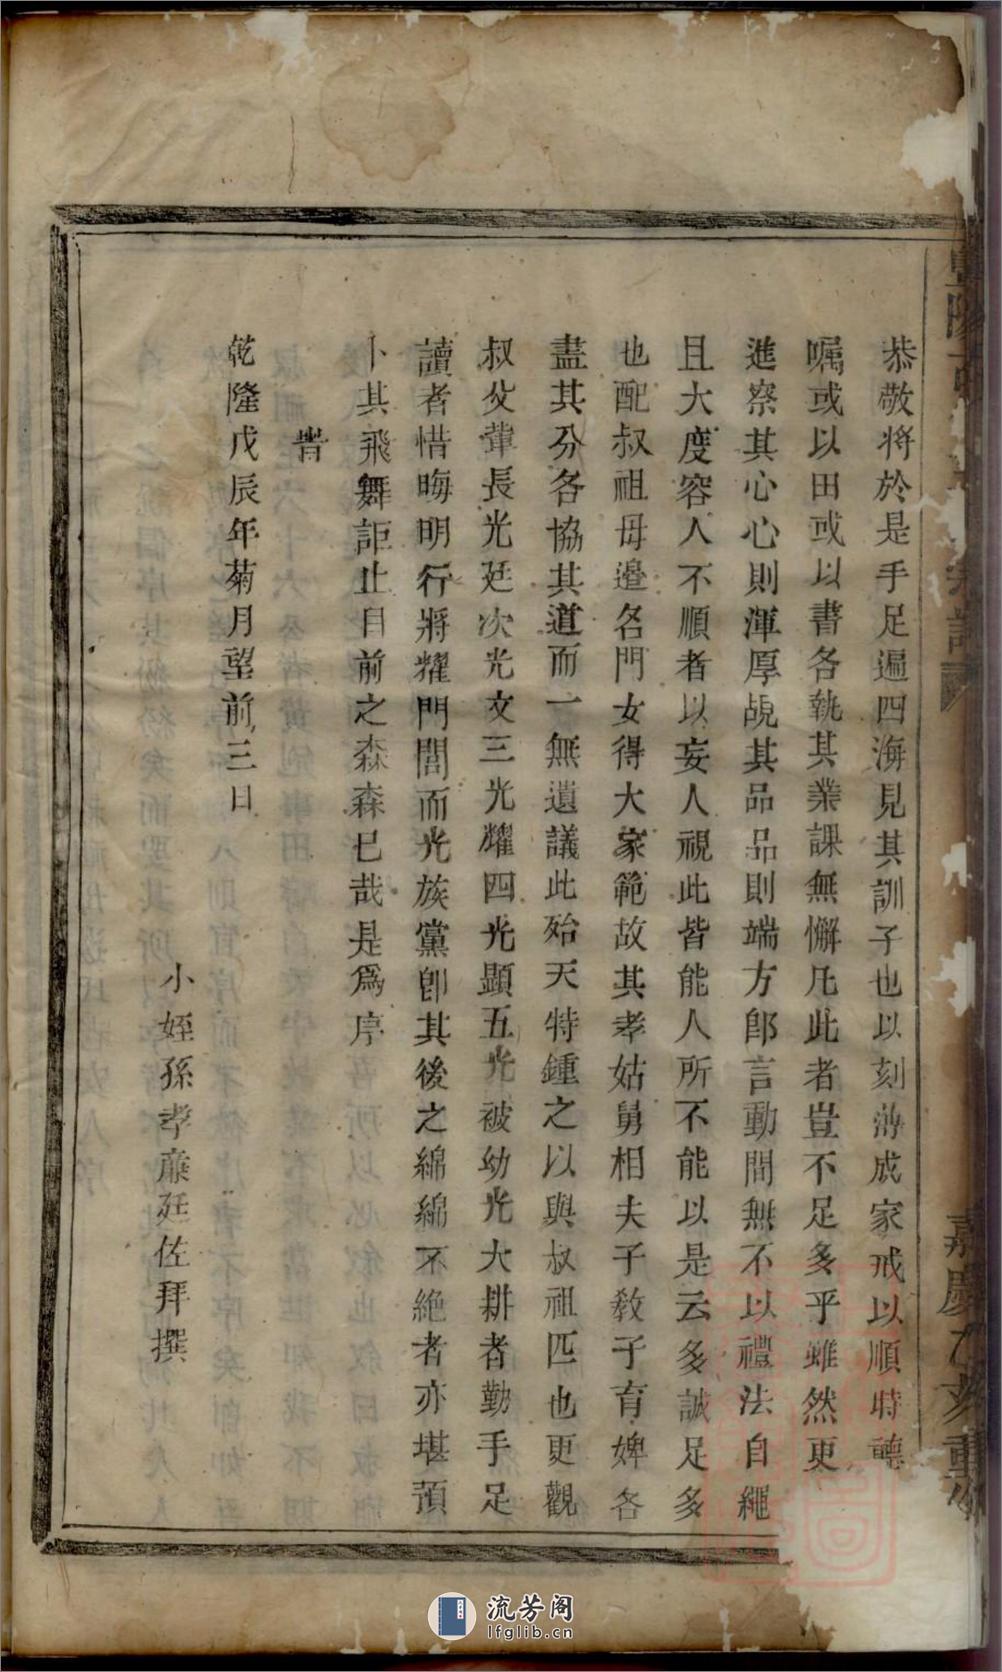 恭敬將於是手足遍四海見其訓子也以刻薄成家戒以順時聽
囑或以田或以書各執其業課無懈凡此者豈不足多乎雖然更
進察其心心則渾厚覘其品品則端方即言動間無不以禮法自繩
且大度容人不順者以妄人視此皆能人所不能以是云多誠足多
也配叔祖母邉名門女得大家範故其孝姑舅相夫子敎子育婢各
盡其分各協其道而一無遺議此殆天特鍾之以與叔祖匹也更觀
叔父軰長光廷次光文三光耀四光顯五光被幼光大耕者勤手足
讀者惜晦明行將耀門閭而光族黨卽其後之綿綿不絶者亦堪預
卜其飛舞詎止目前之森森已哉是爲序
旹
乾隆戊辰年菊月望前三日
小姪孫孝亷廷佐拜撰
嘉慶乙亥重修
流芳阁
lfglib.cn